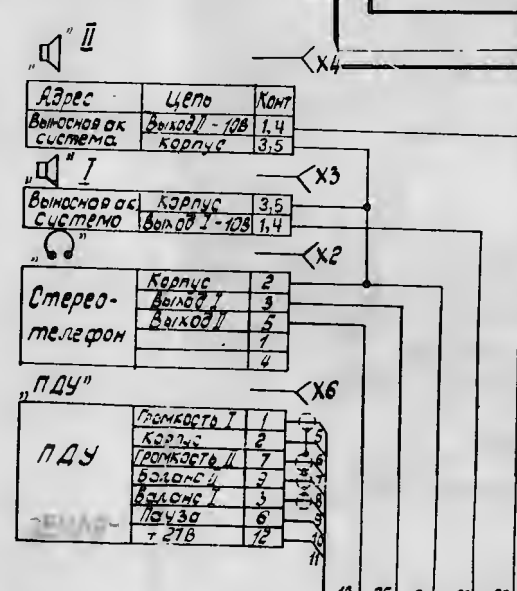 „ " II
X4
Адрес Цепь Конт
Выносная ак система Выход II - 10В 1,4
Корпус 3,5
„ " I
X3
Выносная ак. система Корпус 3,5
Выход I - 10В 1,4
„ "
X2
Стерео-телефон Корпус 2
Выход I 3
Выход II 5
1
4
„ПДУ"
X6
ПДУ Громкость I 1
Корпус 2 5
Громкость II 7 6
Баланс II 9 7
Баланс I 3 8
Пауза 6 9
+27В 12 10
11